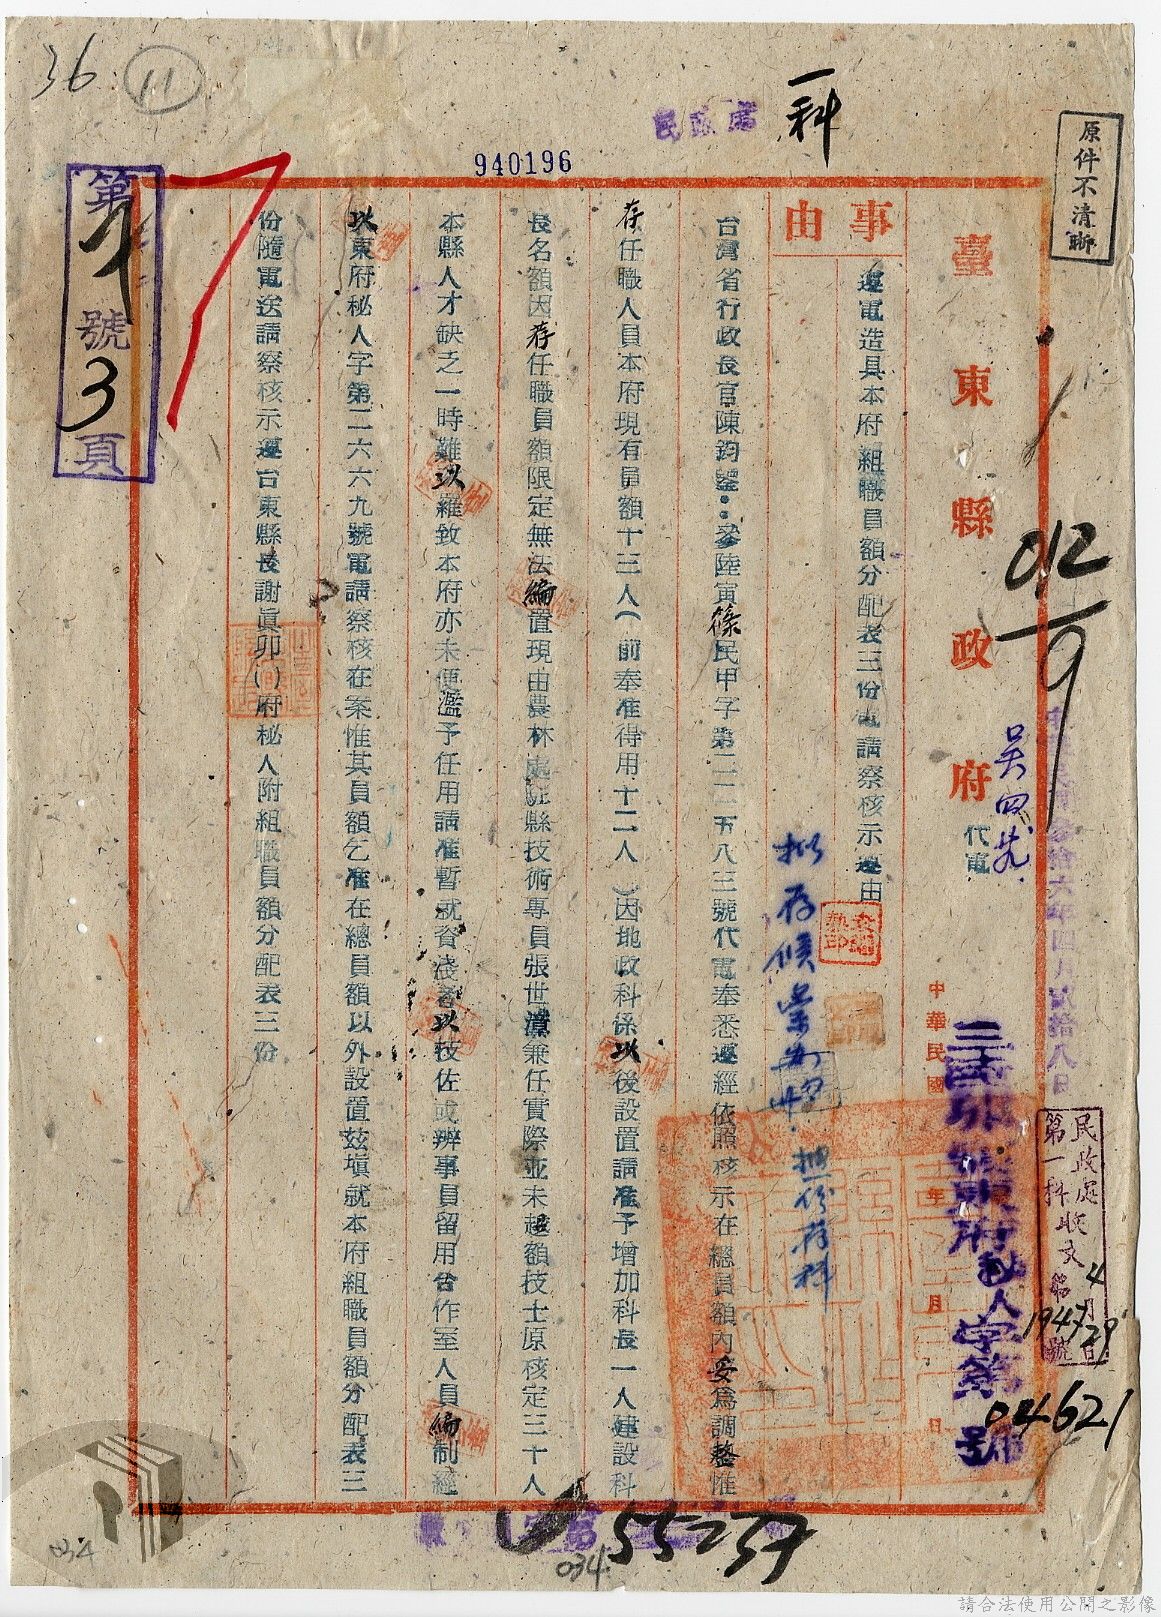 36
11
民政處
一科
940196
原件不清晰
第
號
3
頁
臺東縣政府
代電
事由
遵電造具本府組職員額分配表三份電請察核示遵由
台灣省行政長官陳鈞鑒：參陸寅篠民甲字第二二五八三號代電奉悉遵經依照核示在總員額內妥為調整惟
荐任職人員本府現有員額十三人（前奉准得用十二人）因地政科係以後設置請准予增加科長一人建設科
長名額因荐任職員額限定無法編置現由農林處駐縣技術專員張世 兼任實際並未越額技士原核定三十人
本縣人才缺乏一時難以羅致本府亦未便濫予任用請准暫就資淺者以技佐或辦事員留用合作室人員編制經
以東府秘人字第二六六九號電請察核在案惟其員額乞准在總員額以外設置玆塡就本府組職員額分配表三
份隨電送請察核示遵台東縣長謝眞卯（）府秘人附組職員額分配表三份
中華民國
年
月
日
府秘人字第
04621
號
民政處
第一科收文
4月29日
第1947號
55257
034
034
請合法使用公開之影像